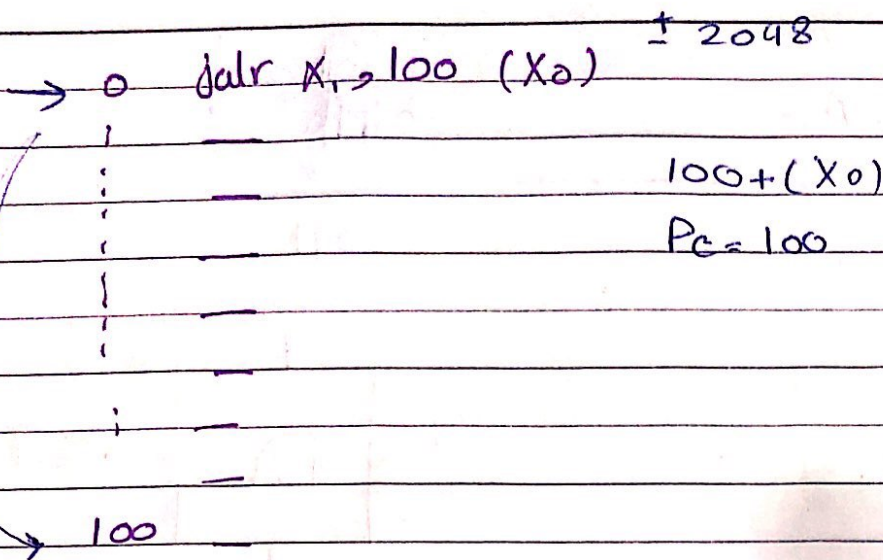 ± 2048
→ 0 Jalr X1, 100 (X0)
100+(X0)
PC = 100
→ 100